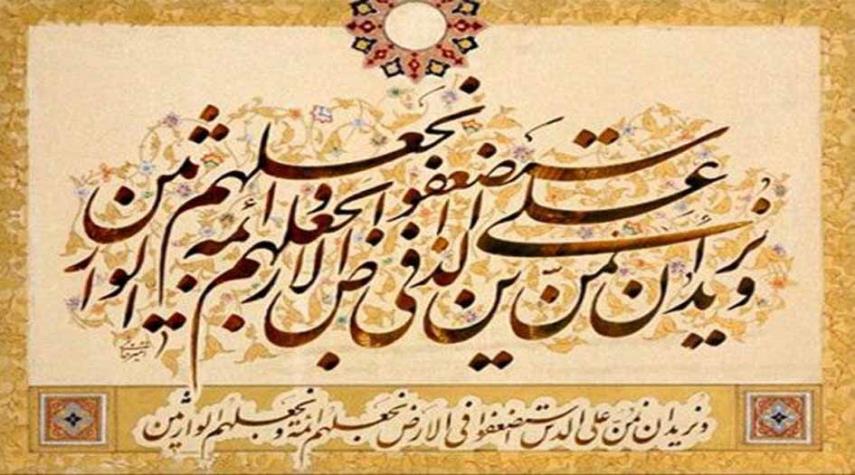 و نرید ان نمن علی الذین استضعفوا فی الارض و نجعلهم ائمة و نجعلهم الوارثین
و نرید ان نمن علی الذین استضعفوا فی الارض نجعلهم ائمة و نجعلهم الوارثین